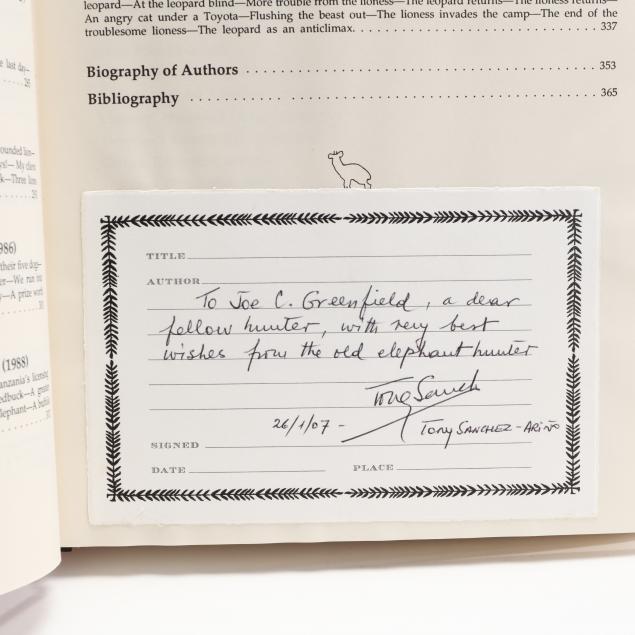 leopard—At the leopard blind—More trouble from the lioness—The leopard returns—The lioness returns—
An angry cat under a Toyota—Flushing the beast out—The lioness invades the camp—The end of the
troublesome lioness—The leopard as an anticlimax. 337
Biography of Authors 353
Bibliography 365
e last day—
ounded lion—
ys!—My client
k—Three lions
986)
their five dog—
er—We run out
y—A prize worth
(1988)
anzania's licensing
edbuck—A greater
elephant—A buffalo
TITLE
AUTHOR
To Joe C. Greenfield, a dear
fellow hunter, with very best
wishes from the old elephant hunter
Tony Sanch
26/1/07 -
Tony SANCHEZ-ARIÑO
SIGNED
DATE PLACE